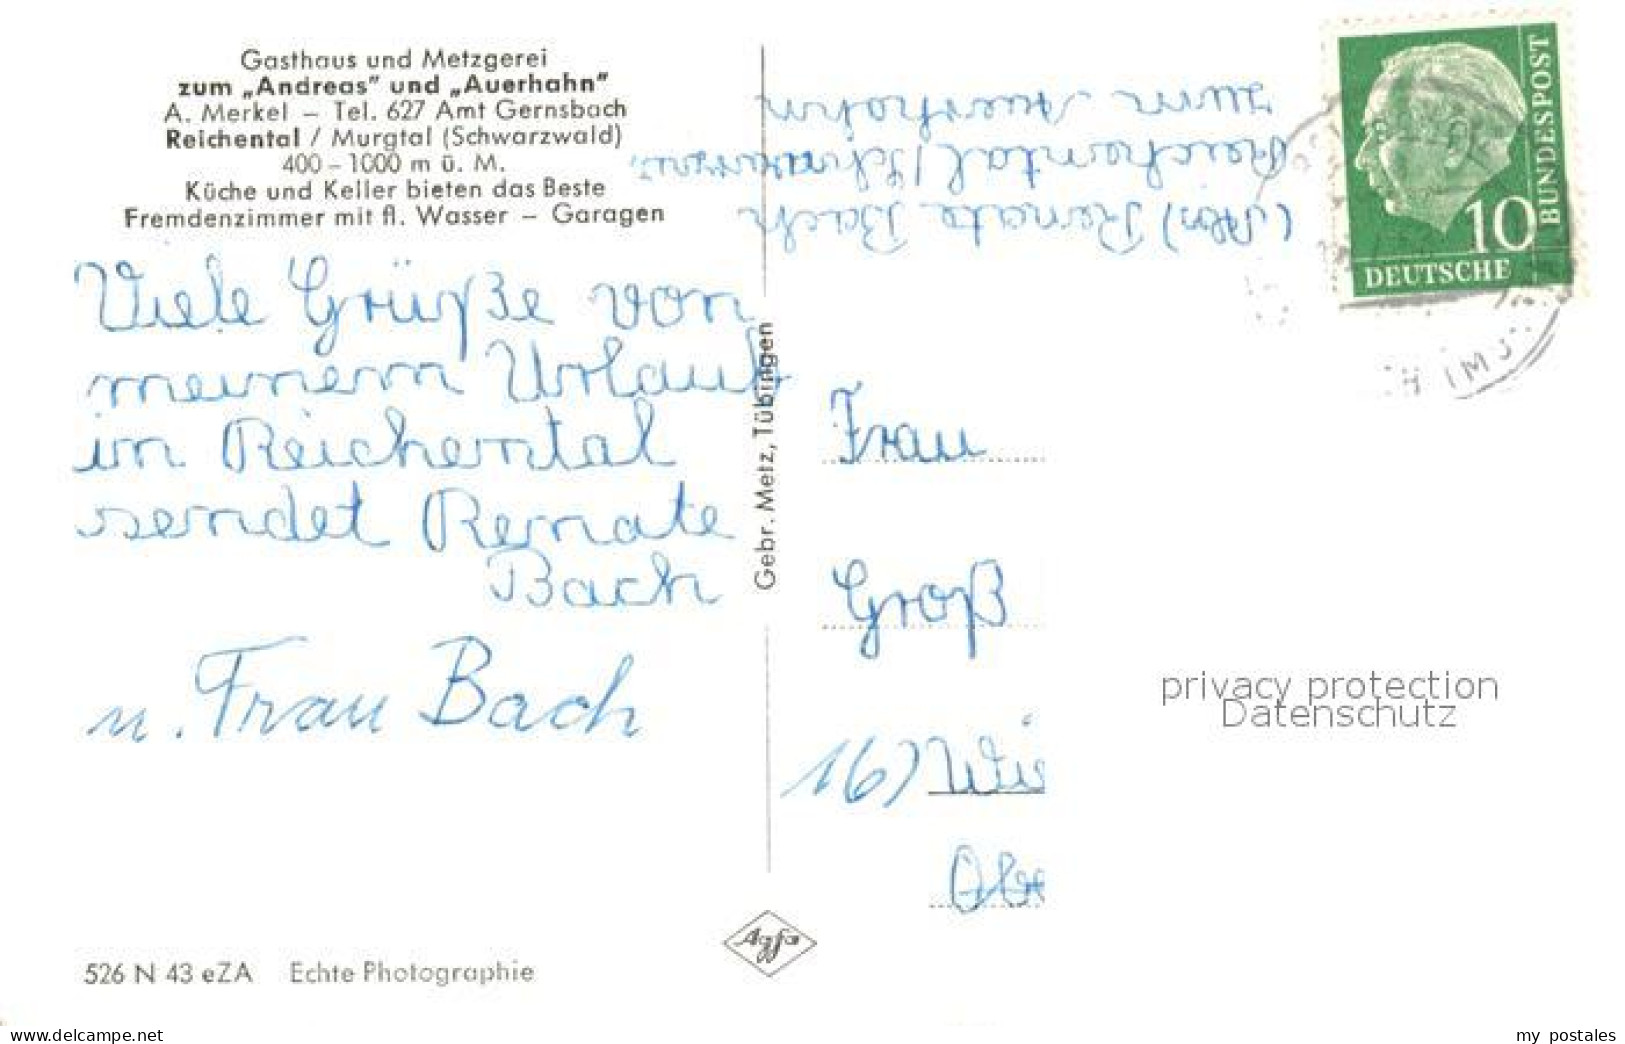 Gasthaus und Metzgerei
zum „Andreas" und „Auerhahn"
A. Merkel – Tel. 627 Amt Gernsbach
Reichental / Murgtal (Schwarzwald)
400 – 1000 m ü. M.
Küche und Keller bieten das Beste
Fremdenzimmer mit fl. Wasser – Garagen
Viele Grüße von
meinem Urlaub
in Reichental
sendet Renate
Bach
u. Frau Bach
526 N 43 eZA Echte Photographie
Gebr. Metz, Tübingen
Agfa
(Abs) Renate Bach
Reichental / Schwarzw.
zum Auerhahn
10
DEUTSCHE
BUNDESPOST
Frau
Groß
16)
privacy protection
Datenschutz
www.delcampe.net
my_postales